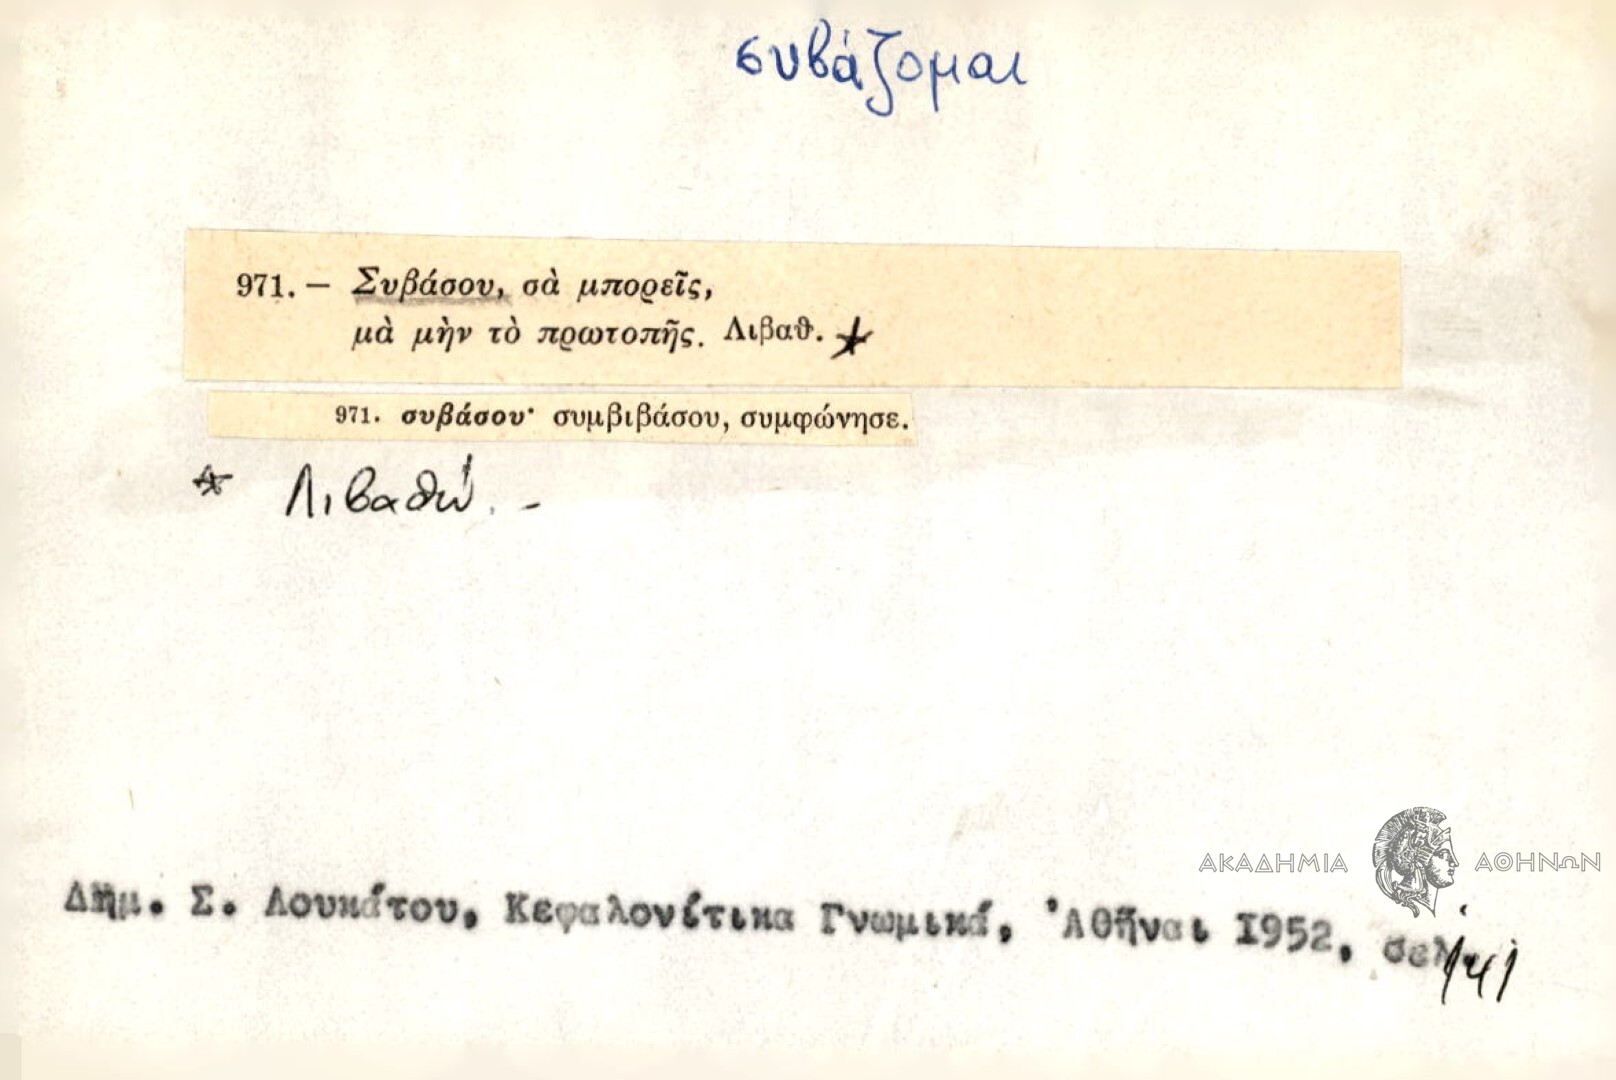 συβάζομαι
971. — Συβάσου, σὰ μπορεῖς,
μὰ μὴν τὸ πρωτοπῆς. Λιβαθ. *
971. συβάσου· συμβιβάσου, συμφώνησε.
* Λιβαθώ. -
ΑΚΑΔΗΜΙΑ ΑΘΗΝΩΝ
Δημ. Σ. Λουκάτου, Κεφαλονίτικα Γνωμικά, Ἀθῆναι 1952, σελ. 141